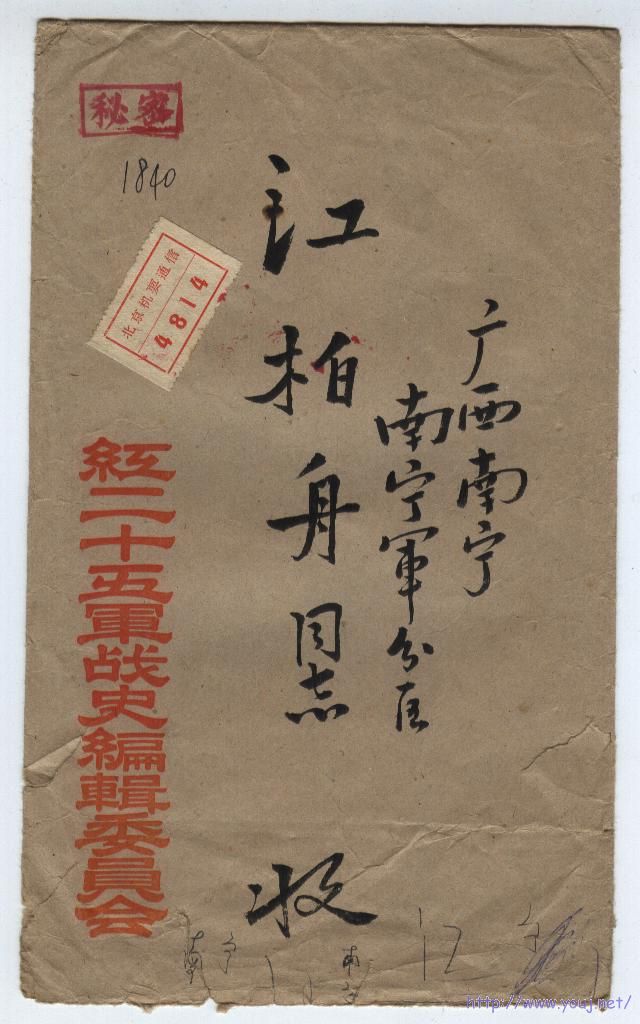 秘密
1840
北京机要通信
4814
广西南宁
南宁軍分区
江柏舟同志
收
紅二十五軍战史編輯委員会
南宁
南宁
江
http://www.youj.net/